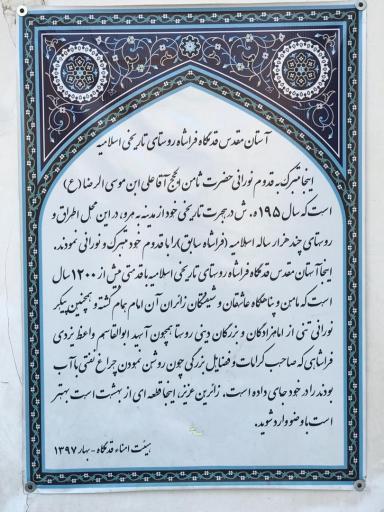 آستان مقدس قدمگاه فراشاه روستای تاریخی اسلامیه
اینجا متبرک به قدوم نورانی حضرت ثامن الحجج آقا علی ابن موسی الرضا (ع)
است که سال ۱۹۵ ه. ش در هجرت تاریخی خود از مدینه به مرو، در این محل اطراق و
روستای چند هزار ساله اسلامیه (فراشاه سابق) را با قدوم خود متبرک و نورانی نمودند.
اینجا آستان مقدس قدمگاه فراشاه روستای تاریخی اسلامیه با قدمتی بیش از ۱۲۰۰ سال
است که مامن و پناهگاه عاشقان و شیفتگان زائران آن امام همام گشته و همچنین پیکر
نورانی تنی از امامزادگان و بزرگان دینی روستا همچون آسید ابوالقاسم واعظ یزدی
فراشاهی که صاحب کرامات و فضایل بزرگی چون روشن نمودن چراغ نفتی با آب
بودند را در خود جای داده است. زائرین عزیز، اینجا قطعه ای از بهشت است بهتر
است با وضو وارد شوید.
هیئت امناء قدمگاه - بهار ۱۳۹۷